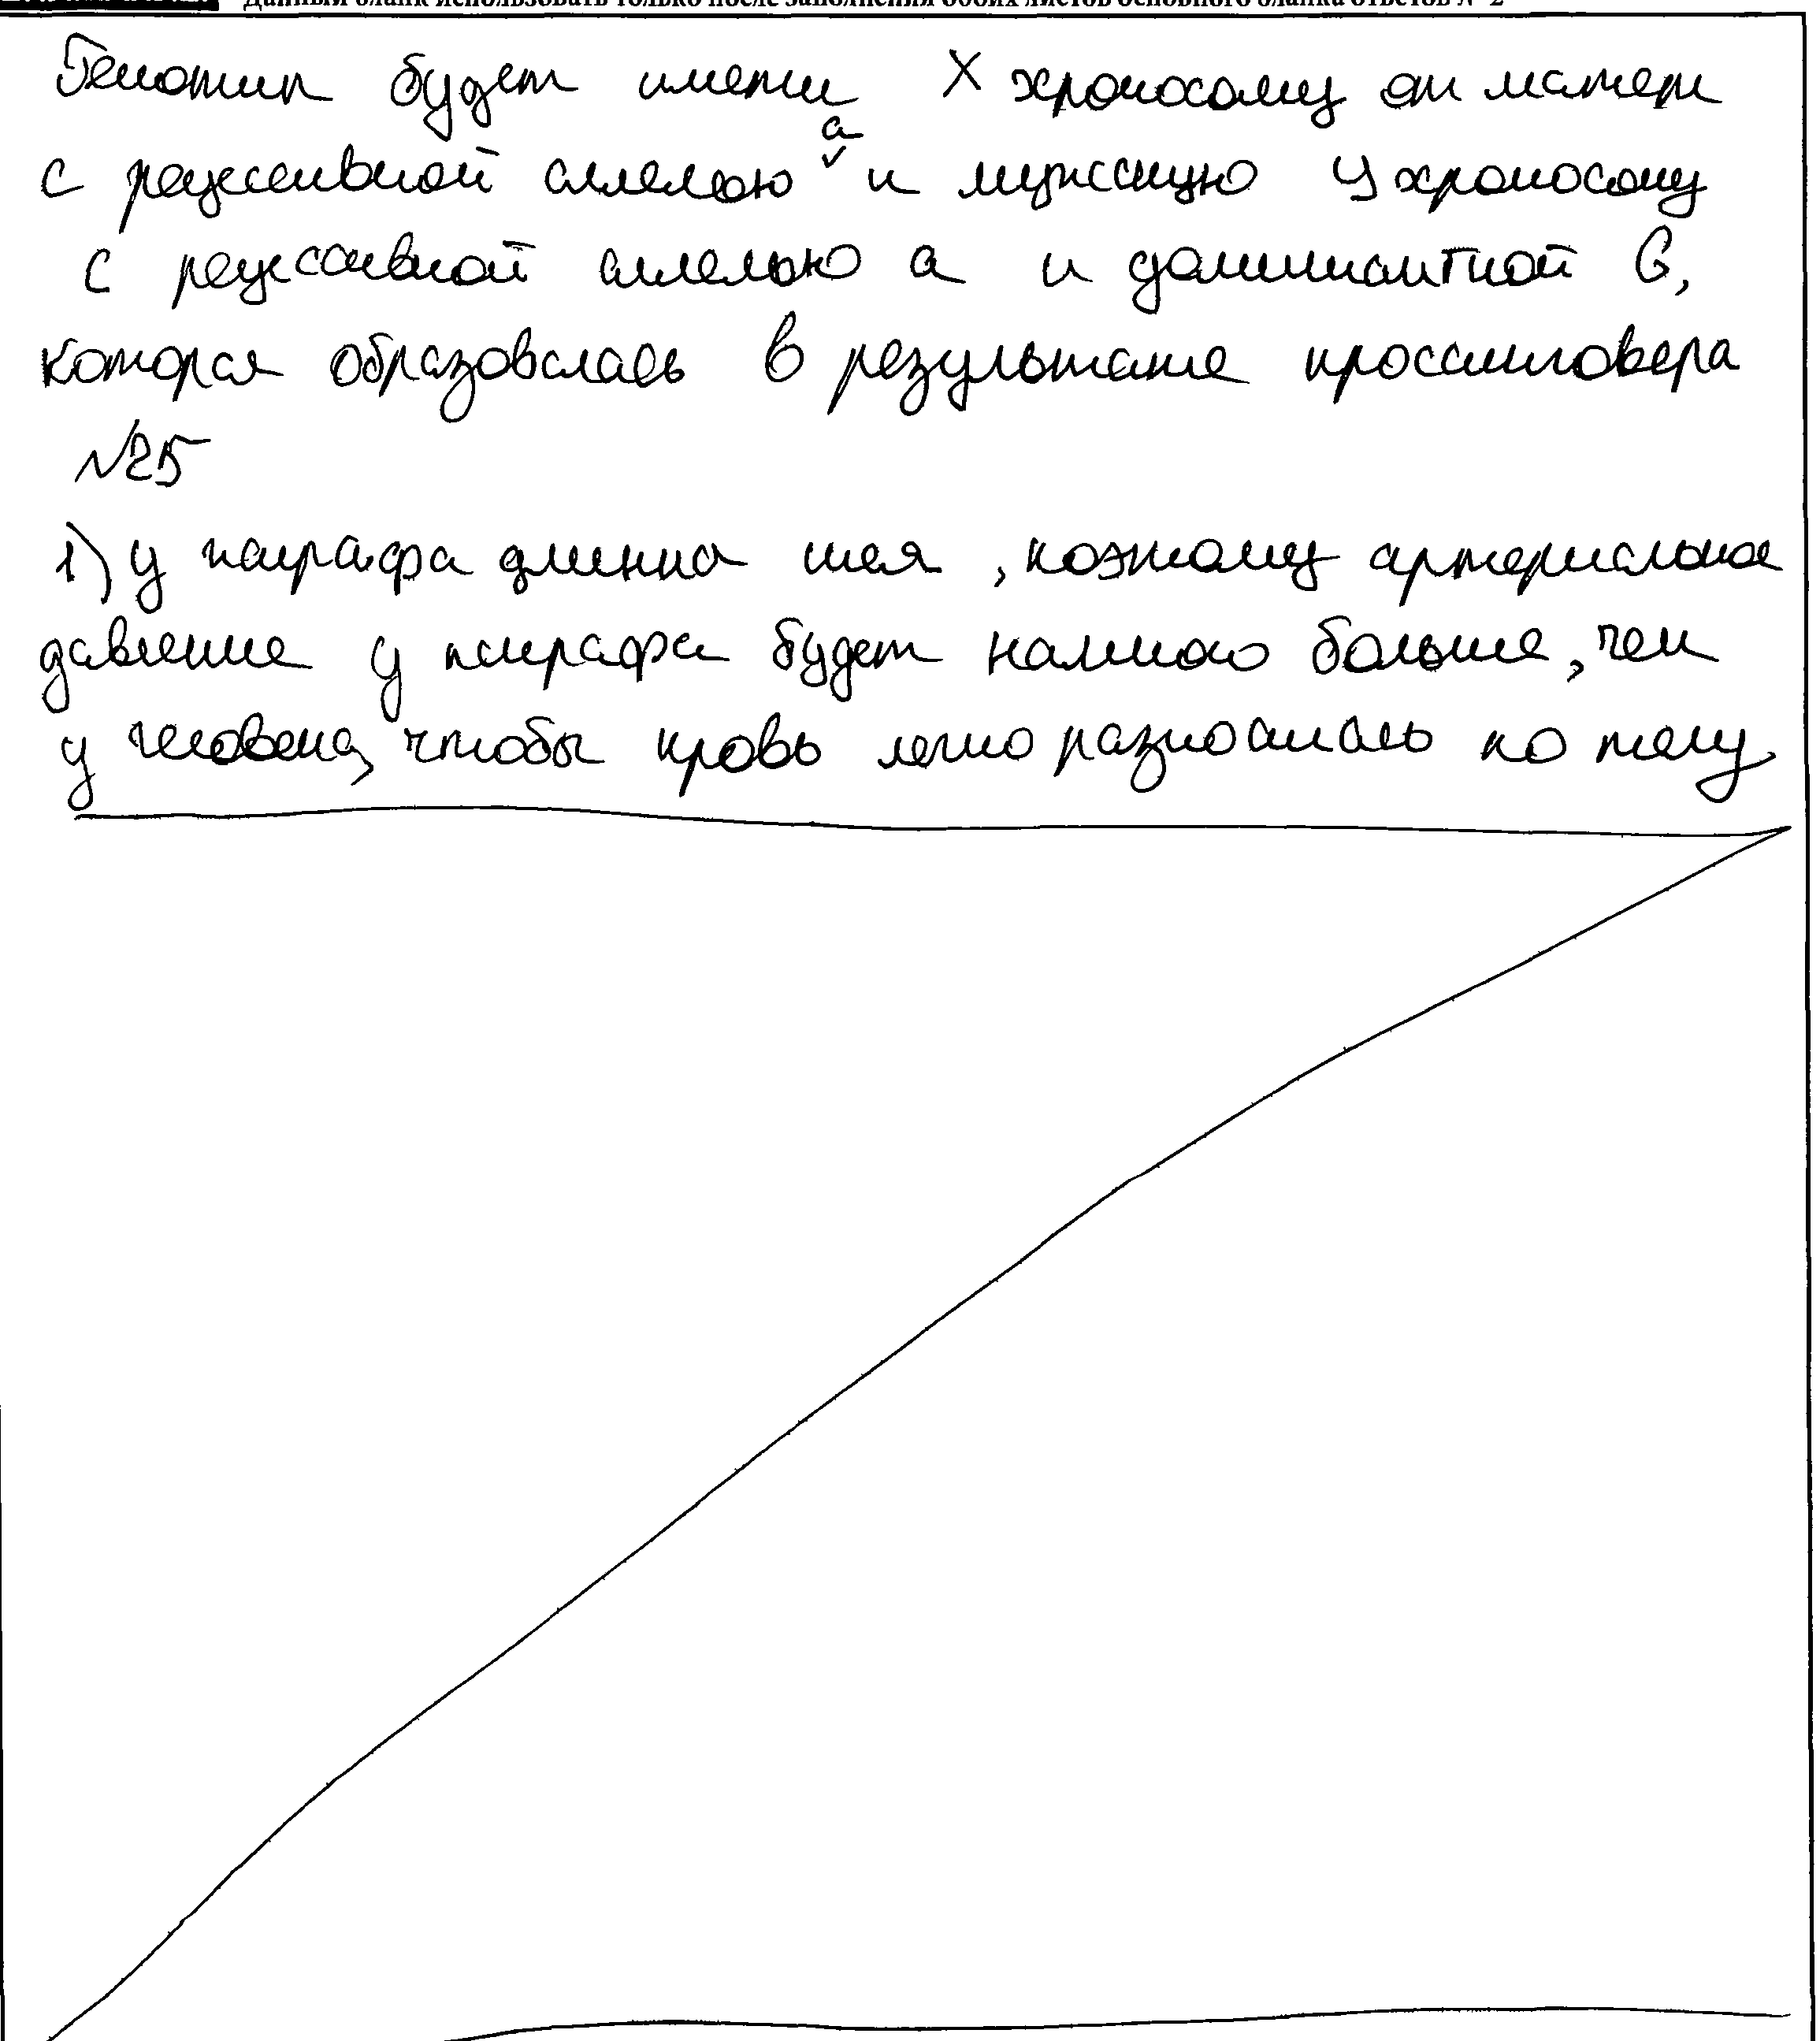 Данный бланк использовать только после заполнения обоих листов основного бланка ответов № 2
Генотип будет иметь X хромосому от матери
с рецессивной аллелью а и мужскую У хромосому
с рецессивной аллелью а и доминантной В,
которая образовалась в результате кроссинговера
№25
1) у жирафа длинна шея, поэтому артериальное
давление у жирафа будет намного больше, чем
у человека, чтобы кровь легко разносилась по телу